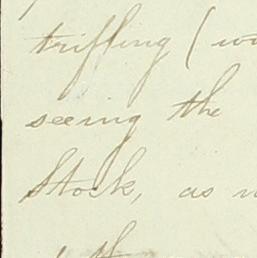 trifling (
seeing the
Stock, as